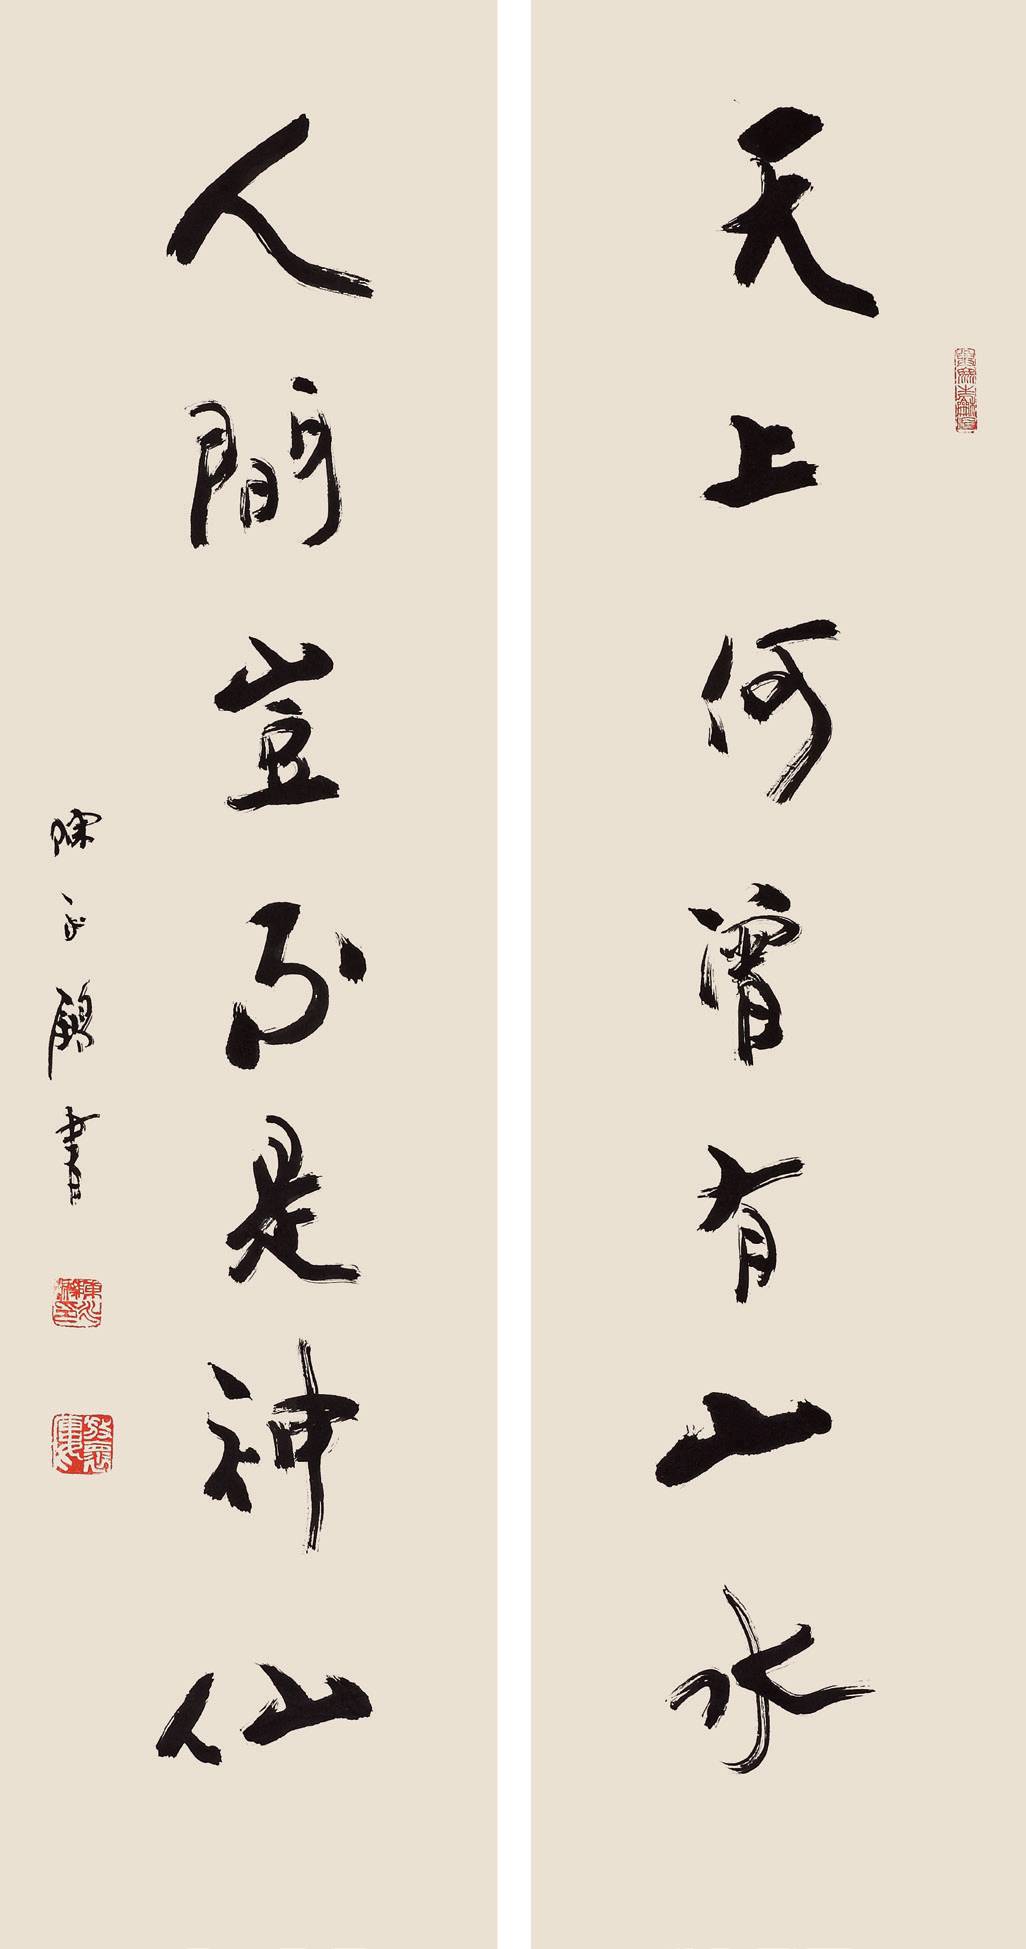 天上何曾有山水
人間豈不是神仙
陳 書